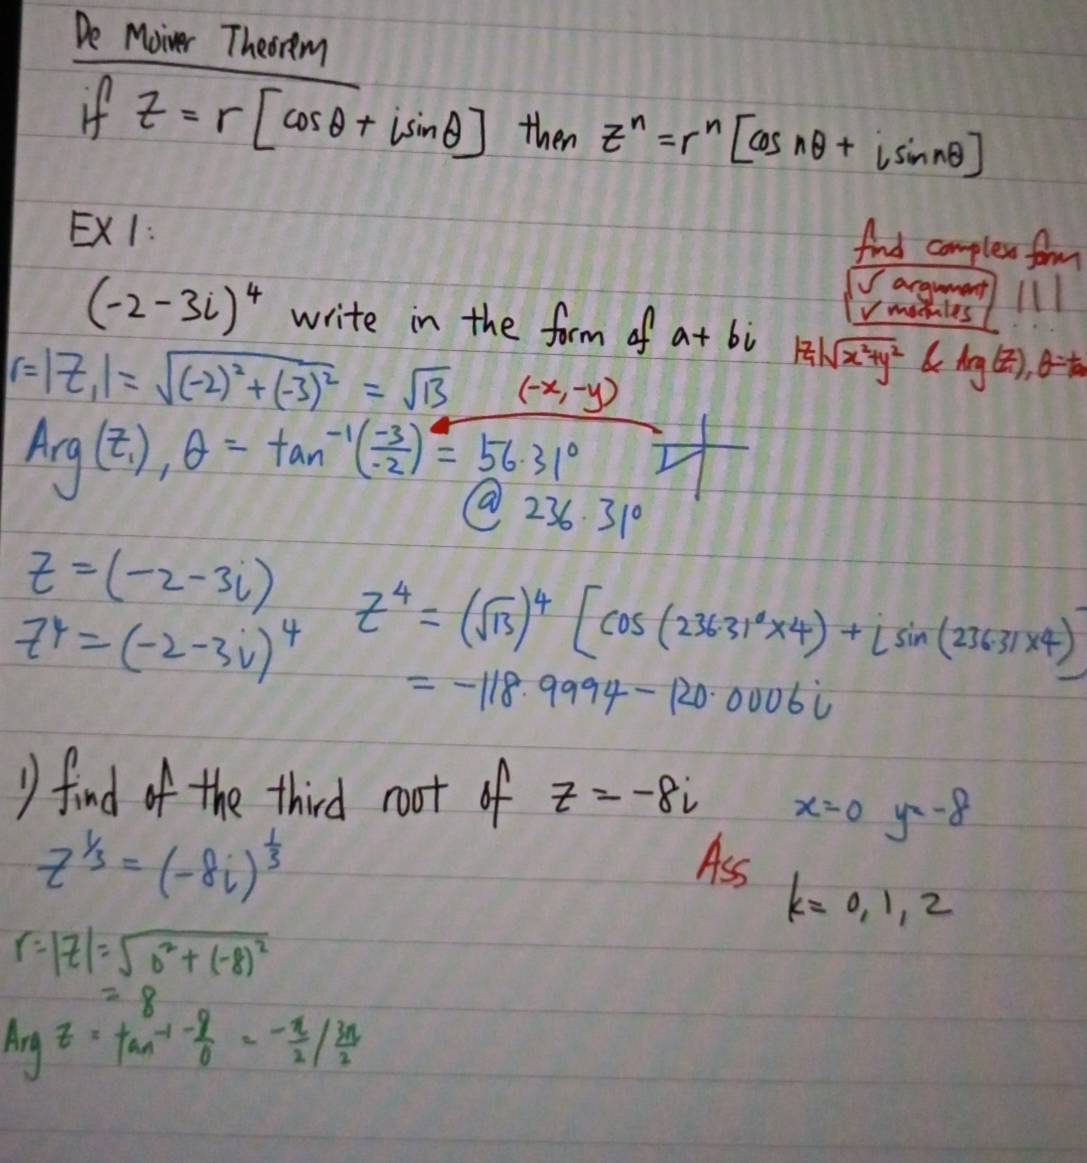 De Moiver Theorem
if z = r [cosθ + isinθ] then zⁿ = rⁿ [cos nθ + i sin nθ]
EX 1:
find complex form
√ argument !!!
√ modules
(-2-3i)⁴ write in the form of a+bi
|z₁|√x²+y² & Arg(z₁), θ=tan
r=|z₁| = √(-2)²+(-3)² = √13
(-x,-y)
Arg(z₁), θ = tan⁻¹(-3/-2) = 56.31°
@ 236.31°
z = (-2-3i)
z⁴ = (-2-3i)⁴
z⁴ = (√13)⁴ [cos (236.31°×4) + i sin (236.31×4)]
= -118.9994 - 120.0006i
1) find of the third root of z = -8i
x=0 y=-8
z^1/3 = (-8i)^1/3
Ass
k= 0, 1, 2
r=|z|=√0²+(-8)²
= 8
Arg z = tan⁻¹ -8/0 = -π/2 / 3π/2